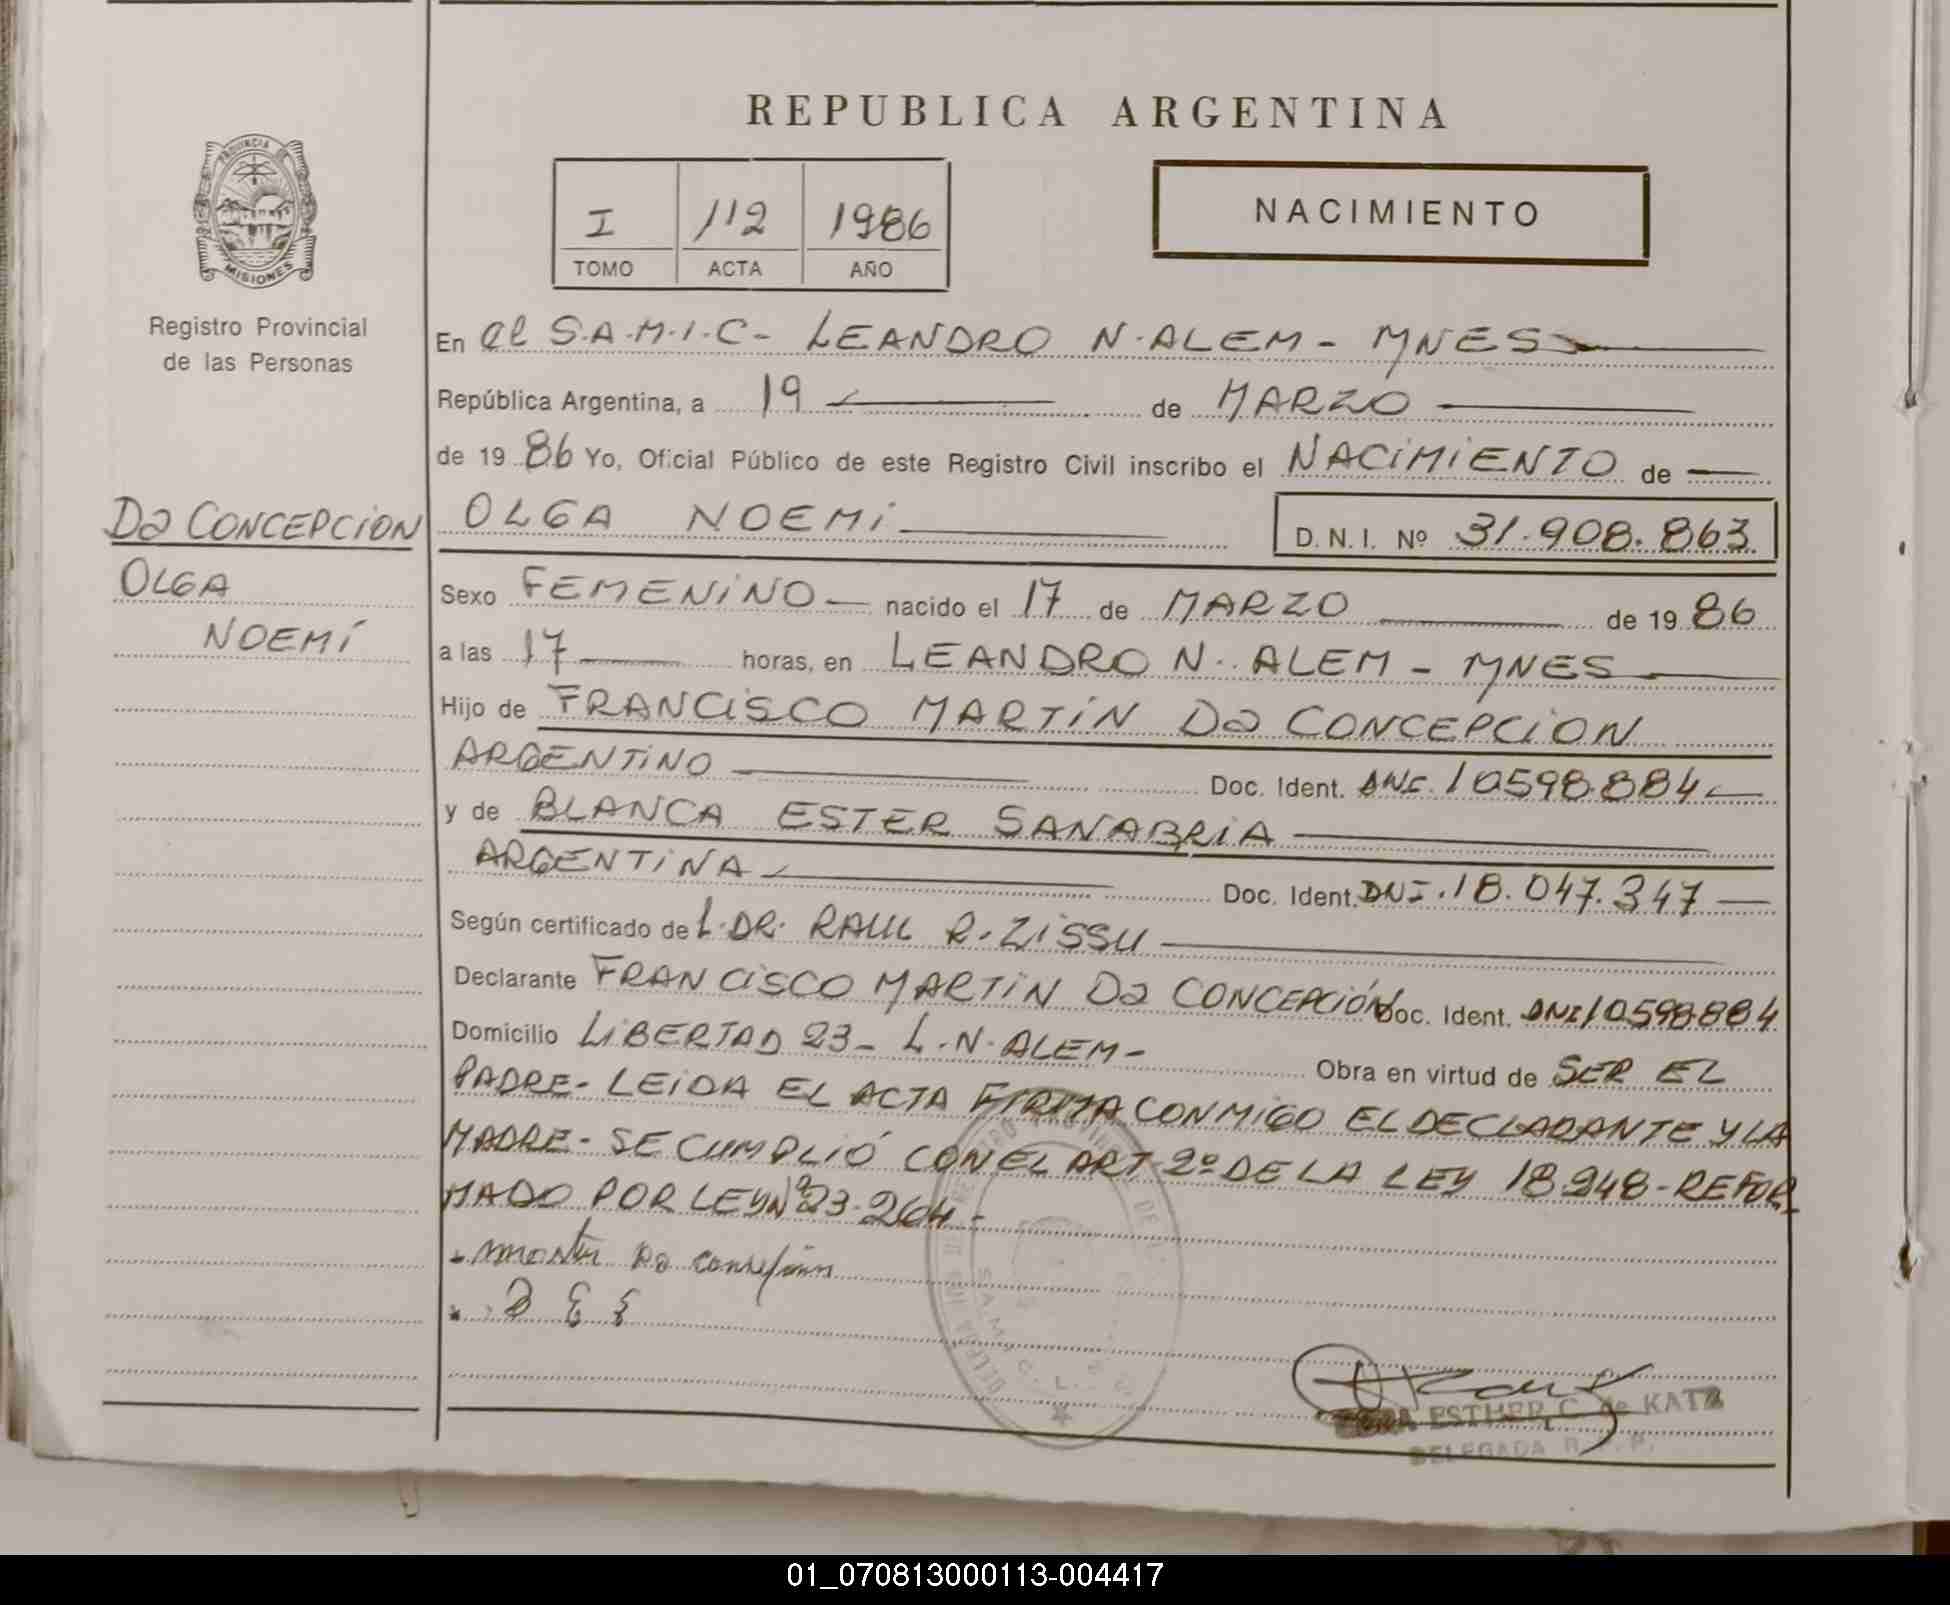 REPUBLICA ARGENTINA
PROVINCIA DE
MISIONES
Registro Provincial
de las Personas
I 112 1986
TOMO ACTA AÑO
NACIMIENTO
En el S.A.M.I.C- LEANDRO N. ALEM - MNES
República Argentina, a 19 de MARZO
de 19 86 Yo, Oficial Público de este Registro Civil inscribo el NACIMIENTO de
Da CONCEPCION
OLGA
NOEMÍ
OLGA NOEMI
D. N. I. Nº 31.908.863
Sexo FEMENINO nacido el 17 de MARZO de 19 86
a las 17 horas, en LEANDRO N. ALEM - MNES
Hijo de FRANCISCO MARTIN Da CONCEPCION
ARGENTINO Doc. Ident. DNI. 10598.884
y de BLANCA ESTER SANABRIA
ARGENTINA Doc. Ident. DNI. 18.047.347
Según certificado de L. DR. RAUL R. ZISSU
Declarante FRANCISCO MARTIN Da CONCEPCIÓN Doc. Ident. DNI 10598884
Domicilio LIBERTAD 23 - L.N. ALEM - Obra en virtud de SER EL
PADRE - LEIDA EL ACTA FIRMA CONMIGO EL DECLARANTE Y LA
MADRE - SE CUMPLIÓ CON EL ART 2º DE LA LEY 18.248 - REFOR
MADO POR LEY Nº 23.264 -
ESTHER C. de KATZ
DELEGADA R. P. P.
01_070813000113-004417